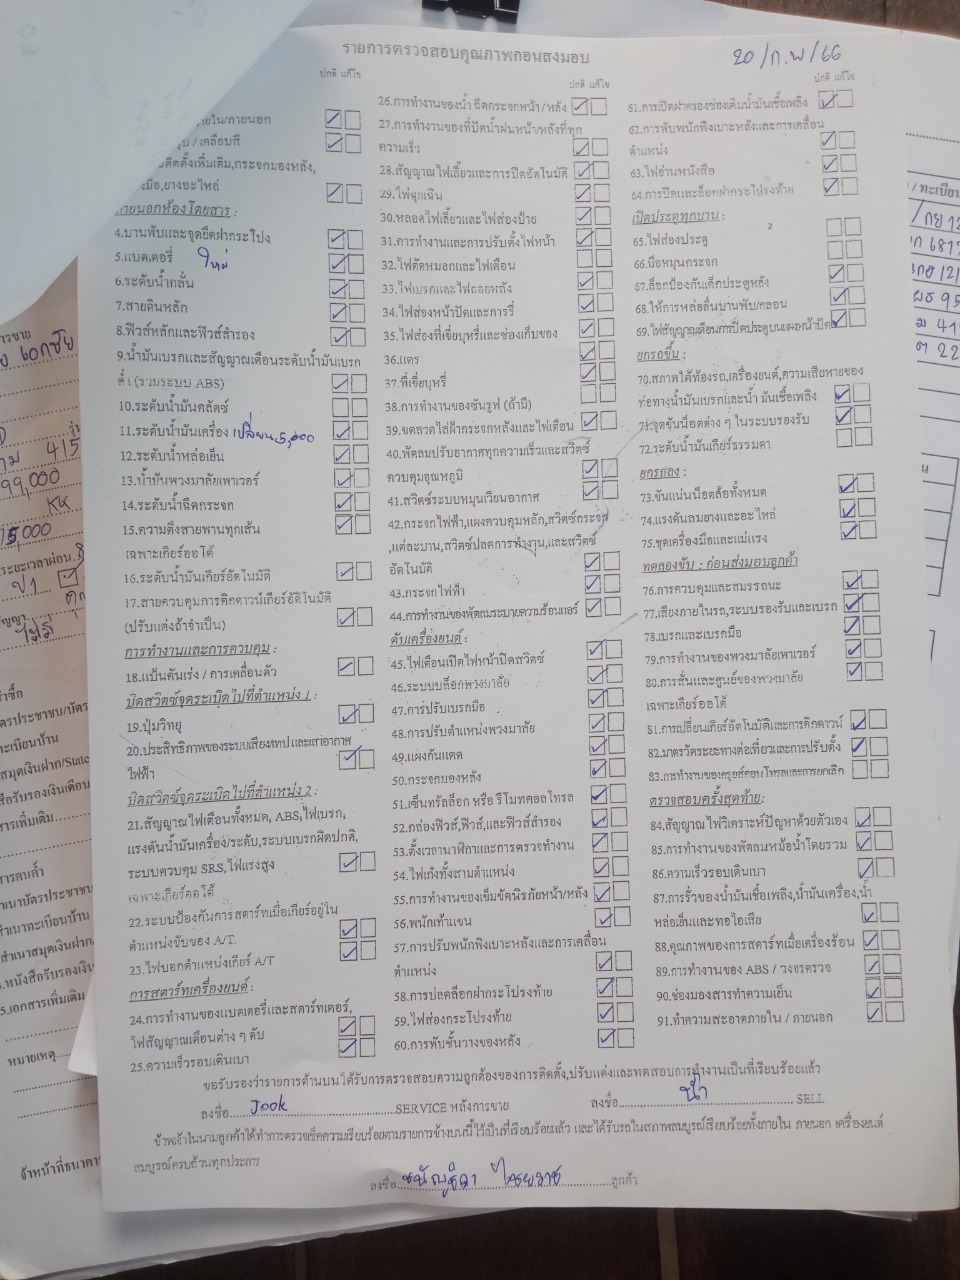 รายการตรวจสอบคุณภาพก่อนส่งมอบ
20/ก.พ/66
ปกติ แก้ไข
ภายนอกห้องโดยสาร :
4.บานพับและจุดยึดฝากระโปง
5.แบตเตอรี่ ใหม่
6.ระดับน้ำกลั่น
7.สายดินหลัก
8.ฟิวส์หลักและฟิวส์สำรอง
9.น้ำมันเบรกและสัญญาณเตือนระดับน้ำมันเบรก
ต่ำ (รวมระบบ ABS)
10.ระดับน้ำมันคลัตช์
11.ระดับน้ำมันเครื่อง เปลี่ยน 5,000
12.ระดับน้ำหล่อเย็น
13.น้ำมันพวงมาลัยเพาเวอร์
14.ระดับน้ำฉีดกระจก
15.ความตึงสายพานทุกเส้น
เฉพาะเกียร์ออโต้
16.ระดับน้ำมันเกียร์อัตโนมัติ
17.สายควบคุมการคิกดาวน์เกียร์อัติโนมัติ
(ปรับแต่งถ้าจำเป็น)
การทำงานและการควบคุม :
18.แป้นคันเร่ง / การเคลื่อนตัว
บิดสวิตซ์จุดระเบิดไปที่ตำแหน่ง 1 :
19.ปุ่มวิทยุ
20.ประสิทธิภาพของระบบเสียง/เทป และเสาอากาศ
ไฟฟ้า
บิดสวิตซ์จุดระเบิดไปที่ตำแหน่ง 2 :
21.สัญญาณไฟเตือนทั้งหมด, ABS,ไฟเบรก,
แรงดันน้ำมันเครื่อง/ระดับ,ระบบเบรกผิดปกติ,
ระบบควบคุม SRS,ไฟแรงสูง
เฉพาะเกียร์ออโต้
22.ระบบป้องกันการสตาร์ทเมื่อเกียร์อยู่ใน
ตำแหน่งขับของ A/T.
23.ไฟบอกตำแหน่งเกียร์ A/T
การสตาร์ทเครื่องยนต์ :
24.การทำงานของแบตเตอรี่และสตาร์ทเตอร์,
ไฟสัญญาณเตือนต่าง ๆ ดับ
25.ความเร็วรอบเดินเบา
ปกติ แก้ไข
26.การทำงานของน้ำ ฉีดกระจกหน้า /หลัง
27.การทำงานของที่ปัดน้ำฝนหน้า/หลังที่ทุก
ความเร็ว
28.สัญญาณไฟเลี้ยวและการปิดอัตโนมัติ
29.ไฟฉุกเฉิน
30.หลอดไฟเลี้ยวและไฟส่องป้าย
31.การทำงานและการปรับตั้งไฟหน้า
32.ไฟตัดหมอกและไฟเตือน
33.ไฟเบรกและไฟถอยหลัง
34.ไฟส่องหน้าปัดและการรี่
35.ไฟส่องที่เขี่ยบุหรี่และช่องเก็บของ
36.แตร
37.ที่เขี่ยบุหรี่
38.การทำงานของซันรูฟ (ถ้ามี)
39.ขดลวดไล่ฝ้ากระจกหลังและไฟเตือน
40.พัดลมปรับอากาศทุกความเร็วและสวิตซ์
ควบคุมอุณหภูมิ
41.สวิตช์ระบบหมุนเวียนอากาศ
42.กระจกไฟฟ้า,แผงควบคุมหลัก,สวิตช์กระจก
,แต่ละบาน,สวิตช์ปลดการทำงาน,และสวิตซ์
อัตโนมัติ
43.กระจกไฟฟ้า
44.การทำงานของพัดลมระบายความร้อนแอร์
ดับเครื่องยนต์ :
45.ไฟเตือนเปิดไฟหน้าปิดสวิตซ์
46.ระบบบล็อกพวงมาลัย
47.การปรับเบรกมือ
48.การปรับตำแหน่งพวงมาลัย
49.แผงกันแดด
50.กระจกมองหลัง
51.เซ็นทรัลล็อก หรือ รีโมทคอลโทรล
52.กล่องฟิวส์,ฟิวส์,และฟิวส์สำรอง
53.ตั้งเวลานาฬิกาและการตรวจทำงาน
54.ไฟเก๋งทั้งสามตำแหน่ง
55.การทำงานของเข็มขัดนิรภัยหน้า/หลัง
56.พนักเท้าแขน
57.การปรับพนักพิงเบาะหลังและการเคลื่อน
ตำแหน่ง
58.การปลดล็อกฝากระโปรงท้าย
59.ไฟส่องกระโปรงท้าย
60.การพับชั้นวางของหลัง
ปกติ แก้ไข
61.การเปิดฝาครอบช่องเติมน้ำมันเชื้อเพลิง
62.การพับพนักพิงเบาะหลังและการเคลื่อน
ตำแหน่ง
63.ไฟอ่านหนังสือ
64.การปิดและล็อกฝากระโปรงท้าย
เปิดประตูทุกบาน :
65.ไฟส่องประตู
66.มือหมุนกระจก
67.ล็อกป้องกันเด็กประตูหลัง
68.ให้การหล่อลื่นบานพับ/กลอน
69.ไฟสัญญาณเตือนการปิดประตูบนแผงหน้าปัด
ยกรถขึ้น :
70.สภาพใต้ท้องรถ,เครื่องยนต์,ความเสียหายของ
ท่อทางน้ำมันเบรกและน้ำ มันเชื้อเพลิง
71.จุดขันน็อตต่าง ๆ ในระบบรองรับ
72.ระดับน้ำมันเกียร์ธรรมดา
ยกรถลง :
73.ขันแน่นน็อตล้อทั้งหมด
74.แรงดันลมยางและอะไหล่
75.ชุดเครื่องมือและแม่แรง
ทดลองขับ : ก่อนส่งมอบลูกค้า
76.การควบคุมและสมรรถนะ
77.เสียงภายในรถ,ระบบรองรับและเบรก
78.เบรกและเบรกมือ
79.การทำงานของพวงมาลัยเพาเวอร์
80.การสั่นและศูนย์ของพวงมาลัย
เฉพาะเกียร์ออโต้
81.การเปลี่ยนเกียร์อัตโนมัติและการคิกดาวน์
82.มาตรวัดระยะทางต่อเที่ยวและการปรับตั้ง
83.การทำงานของครุยส์คอนโทรลและการยกเลิก
ตรวจสอบครั้งสุดท้าย:
84.สัญญาณไฟวิเคราะห์ปัญหาด้วยตัวเอง
85.การทำงานของพัดลมหม้อน้ำโดยรวม
86.ความเร็วรอบเดินเบา
87.การรั่วของน้ำมันเชื้อเพลิง,น้ำมันเครื่อง,น้ำ
หล่อเย็นและทอไอเสีย
88.คุณภาพของการสตาร์ทเมื่อเครื่องร้อน
89.การทำงานของ ABS / วงจรตรวจ
90.ช่องมองสารทำความเย็น
91.ทำความสะอาดภายใน / ภายนอก
ขอรับรองว่ารายการด้านบนได้รับการตรวจสอบความถูกต้องของการติดตั้ง,ปรับแต่งและทดสอบการทำงานเป็นที่เรียบร้อยแล้ว
ลงชื่อ Jook SERVICE หลังการขาย ลงชื่อ น้ำ SELL
ข้าพเจ้าในนามลูกค้าได้ทำการตรวจเช็คความเรียบร้อยตามรายการข้างบนนี้ไว้เป็นที่เรียบร้อยแล้ว และได้รับรถในสภาพสมบูรณ์เรียบร้อยทั้งภายใน ภายนอก เครื่องยนต์
สมบูรณ์ครบถ้วนทุกประการ
ลงชื่อ ลูกค้า